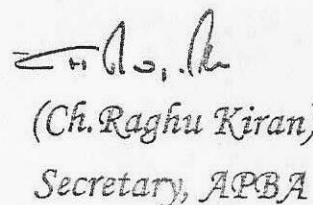 (Ch.Raghu Kiran)
Secretary, APBA